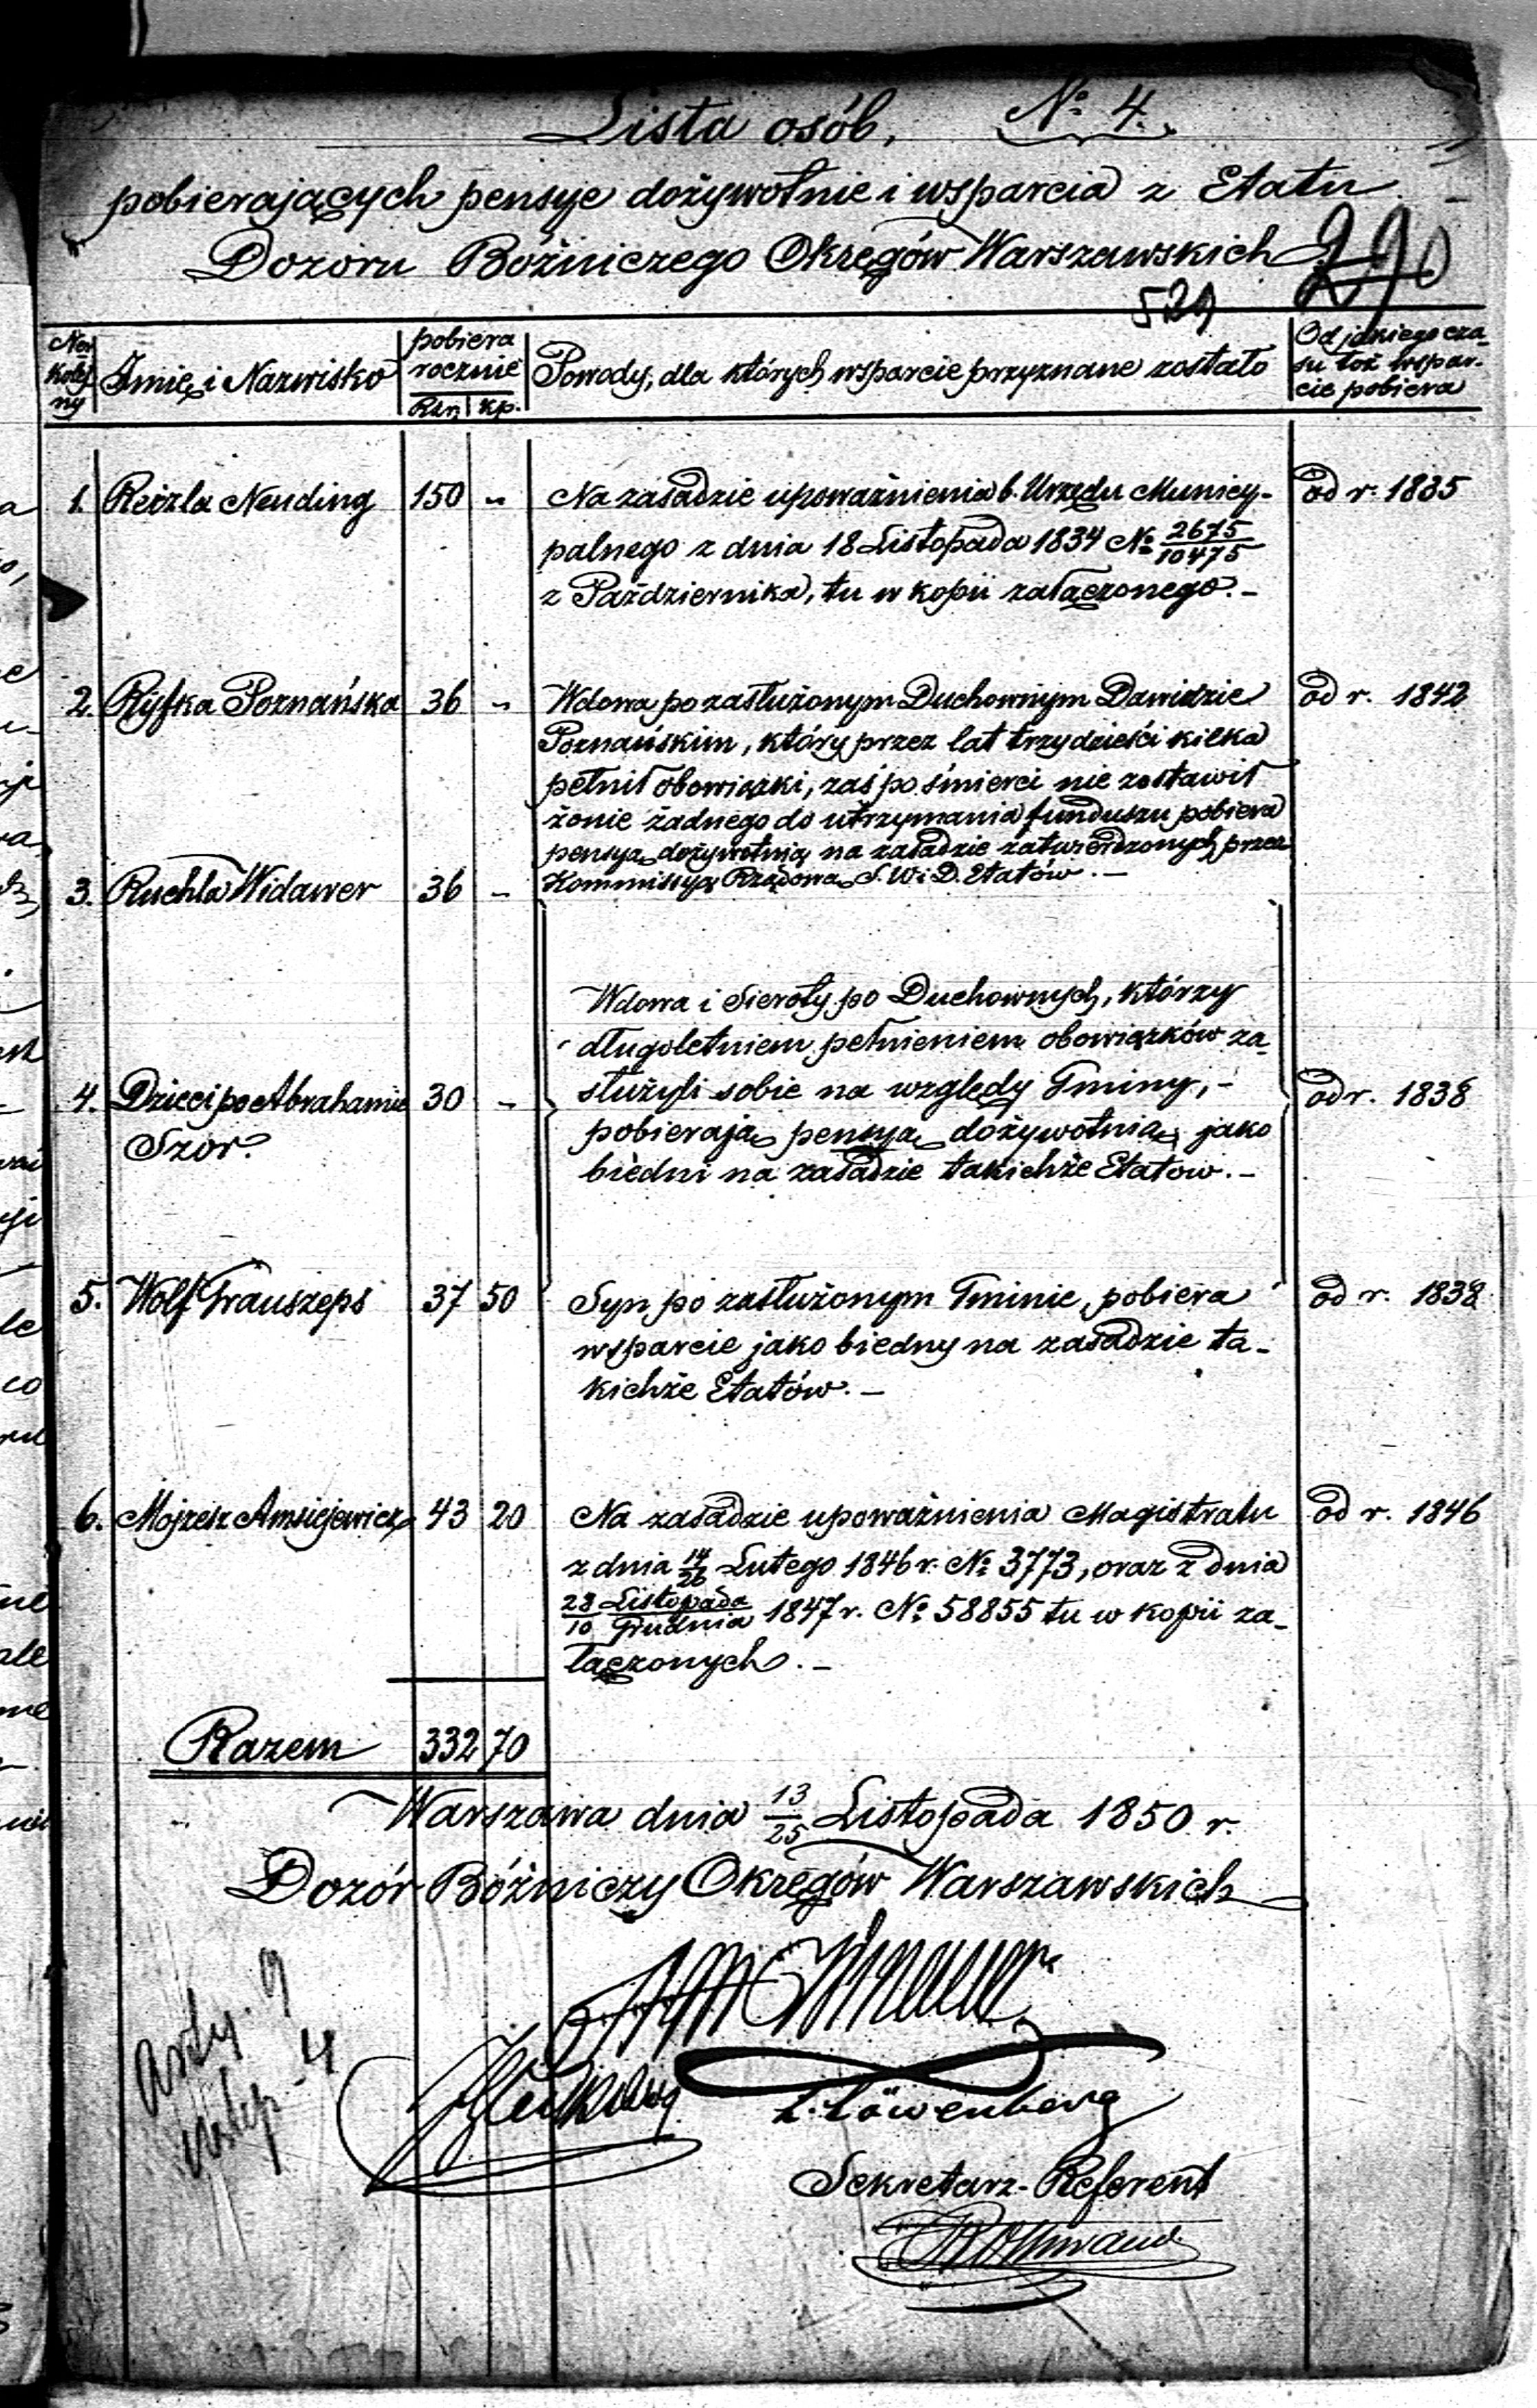 Lista osób, No 4.
pobierających pensyje dożywotnie i wsparcia z Etatu
Dozoru Bóżniczego Okręgów Warszawskich
290
529
Ner kolejny
Imię i Nazwisko
pobiera rocznie
Rsr. kp.
Powody, dla których wsparcie przyznane zostało
Od jakiego cza-
su toż wspar-
cie pobiera
1. Reizla Neuding 150 - Na zasadzie upoważnienia b. Urzędu Municy- od r. 1835
palnego z dnia 18 Listopada 1834 No 2675/10475
z Października, tu w kopii załączonego. -
2. Ryfka Poznańska 36 - Wdowa po zasłużonym Duchownym Dawidzie od r. 1842
Poznańskim, który przez lat trzydzieści kilka
pełnił obowiązki, zaś po śmierci nie zostawił
żonie żadnego do utrzymania funduszu pobiera
pensyą dożywotnią na zasadzie zatwierdzonych przez
3. Ruchla Widawer 36 - Kommissyą Rządową S. W. i D. Etatów. -
Wdowa i Sieroty po Duchownych, którzy
długoletniem pełnieniem obowiązków za-
4. Dzieci po Abrahamie 30 - służyli sobie na względy Gminy, - od r. 1838
Szor. pobierają pensyą dożywotnią, jako
biedni na zasadzie takichże Etatów. -
5. Wolf Grauszeps 37 50 Syn po zasłużonym Gminie, pobiera od r. 1838
wsparcie jako biedny na zasadzie ta-
kichże Etatów. -
6. Mojżesz Amsiejewicz 43 20 Na zasadzie upoważnienia Magistratu od r. 1846
z dnia 14/26 Lutego 1846 r. No 3773, oraz z dnia
28 Listopada/10 Grudnia 1847 r. No 58855 tu w kopii za-
łączonych. -
Razem 332 70
Warszawa dnia 13/25 Listopada 1850 r.
Dozór Bóżniczy Okręgów Warszawskich
L. Löwenberg
Sekretarz-Referent